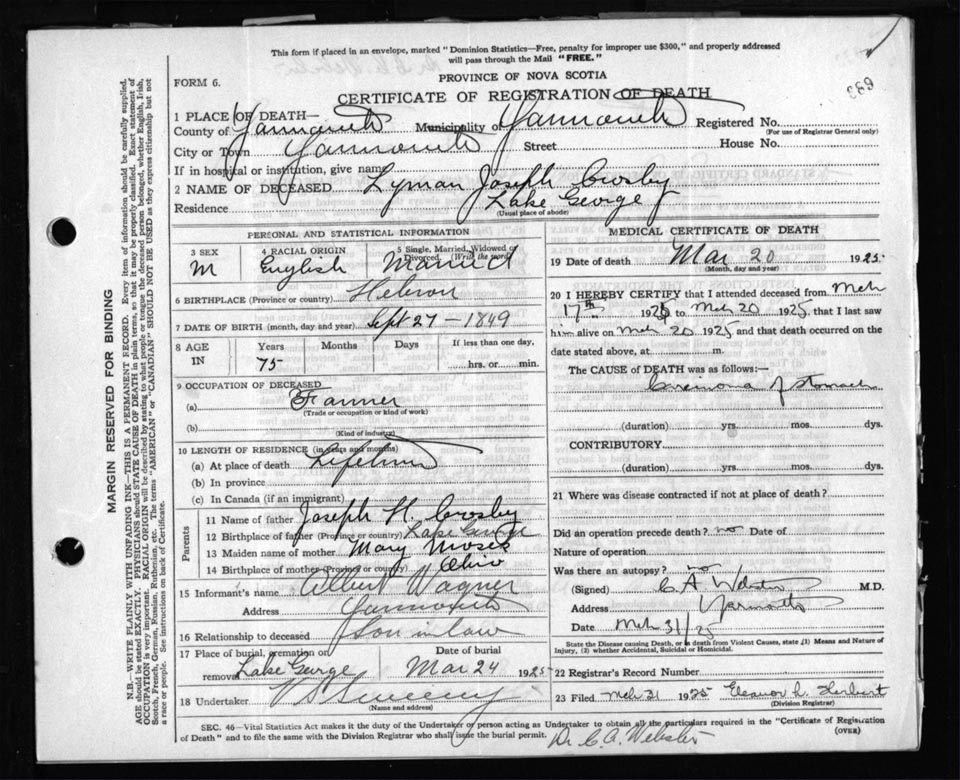 This form if placed in an envelope, marked "Dominion Statistics—Free, penalty for improper use $300," and properly addressed
will pass through the Mail "FREE."
FORM 6.
PROVINCE OF NOVA SCOTIA
CERTIFICATE OF REGISTRATION OF DEATH
689
1 PLACE OF DEATH—
County of Yarmouth Municipality of Yarmouth Registered No.
(For use of Registrar General only)
City or Town Yarmouth Street House No.
If in hospital or institution, give name
2 NAME OF DECEASED Lyman Joseph Crosby
Residence Lake George
(Usual place of abode)
PERSONAL AND STATISTICAL INFORMATION
3 SEX 4 RACIAL ORIGIN 5 Single, Married, Widowed or Divorced (Write the word)
M English Married
6 BIRTHPLACE (Province or country) Hebron
7 DATE OF BIRTH (month, day and year) Sept 27 - 1849
8 AGE IN Years Months Days If less than one day,
75 hrs. or min.
9 OCCUPATION OF DECEASED
(a) Farmer
(Trade or occupation or kind of work)
(b)
(Kind of industry)
10 LENGTH OF RESIDENCE (in years and months)
(a) At place of death Lifetime
(b) In province
(c) In Canada (if an immigrant)
Parents
11 Name of father Joseph H. Crosby
12 Birthplace of father (Province or country) Lake George
13 Maiden name of mother Mary Moses
14 Birthplace of mother (Province or country) Ohio
15 Informant's name Albert Wagner
Address Yarmouth
16 Relationship to deceased Son in law
17 Place of burial, cremation or removal Date of burial
Lake George Mar 24 1925
18 Undertaker V S Sweeny
(Name and address)
MEDICAL CERTIFICATE OF DEATH
19 Date of death Mar 20 1925
(Month, day and year)
20 I HEREBY CERTIFY that I attended deceased from Mch
17th 1925 to Mch 20 1925, that I last saw
him alive on Mch 20 1925 and that death occurred on the
date stated above, at m.
The CAUSE OF DEATH was as follows:—
Carcinoma of stomach
(duration) yrs. mos. dys.
CONTRIBUTORY
(duration) yrs. mos. dys.
21 Where was disease contracted if not at place of death?
Did an operation precede death? no Date of
Nature of operation
Was there an autopsy? no
(Signed) C A Webster M.D.
Address Yarmouth
Date Mch 31/25
State the Disease causing Death, or in death from Violent Causes, state (1) Means and Nature of
Injury, (2) whether Accidental, Suicidal or Homicidal.
22 Registrar's Record Number
23 Filed Mch 31 1925 Eleanor L. Herbert
(Division Registrar)
SEC. 46—Vital Statistics Act makes it the duty of the Undertaker or person acting as Undertaker to obtain all the particulars required in the "Certificate of Registration
of Death" and to file the same with the Division Registrar who shall issue the burial permit.
(OVER)
Dr. C. A. Webster
MARGIN RESERVED FOR BINDING
N.B.—WRITE PLAINLY WITH UNFADING INK—THIS IS A PERMANENT RECORD. Every item of information should be carefully supplied.
AGE should be stated EXACTLY. PHYSICIANS should STATE CAUSE OF DEATH in plain terms, so that it may be properly classified. Exact statement of
OCCUPATION is very important. RACIAL ORIGIN will be described by stating to what people or tongue the deceased person belonged, whether English, Irish,
Scotch, French, German, Russian, Ruthenian, etc. The terms "AMERICAN" or "CANADIAN" SHOULD NOT BE USED as they express citizenship but not
a race or people. See instructions on back of Certificate.